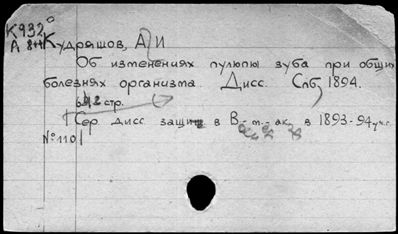 К932
А 844
Кудряшов, А. И
Об изменениях пулюпы зуба при общих
болезнях организма. Дисс. Спб, 1894.
стр.
Сер. дисс. защищ. в В.-м.-ак. в 1893-94 уч. г.
№ 110